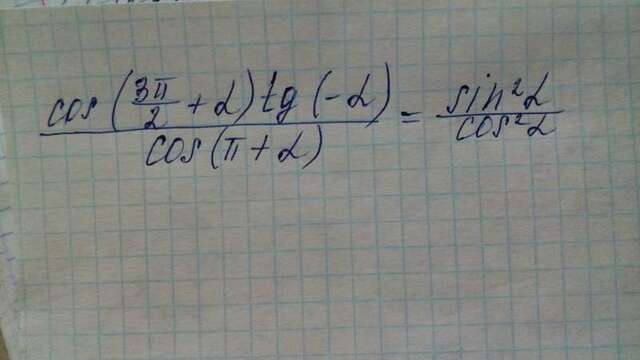 cos(3π/2 + α) tg(-α) / cos(π + α) = sin²α / cos²α